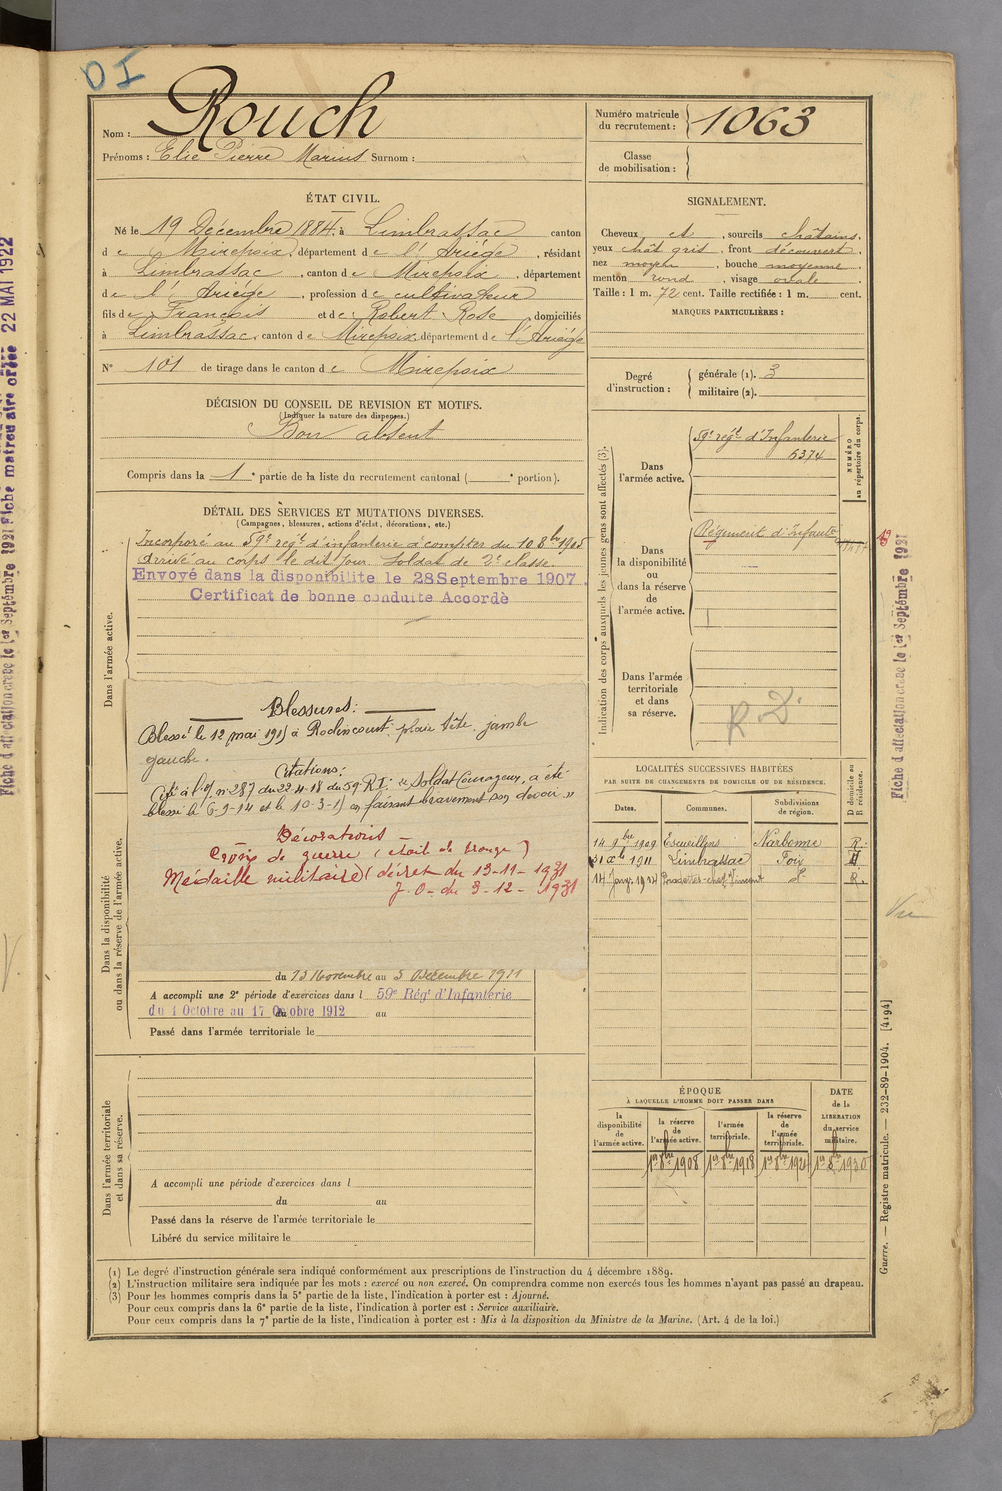 OI
Nom : Rouch
Prénoms : Elie Pierre Marius Surnom :
Numéro matricule
du recrutement : 1063
Classe
de mobilisation :
ÉTAT CIVIL.
Né le 19 Décembre 1884, à Limbrassac canton
de Mirepoix, département de l'Ariège, résidant
à Limbrassac, canton de Mirepoix, département
de l'Ariége, profession de cultivateur
fils de François et de Robert Rose domiciliés
à Limbrassac, canton de Mirepoix, département de l'Ariége
N° 101 de tirage dans le canton de Mirepoix
SIGNALEMENT.
Cheveux et, sourcils châtains,
yeux chât gris, front découvert,
nez moyen, bouche moyenne
menton rond, visage ovale
Taille : 1 m. 72 cent. Taille rectifiée : 1 m. cent.
MARQUES PARTICULIÈRES :
Degré
d'instruction :
générale (1). 3
militaire (2).
DÉCISION DU CONSEIL DE REVISION ET MOTIFS.
(Indiquer la nature des dispenses.)
Bon absent
Compris dans la 1e partie de la liste du recrutement cantonal ( e portion).
DÉTAIL DES SERVICES ET MUTATIONS DIVERSES.
(Campagnes, blessures, actions d'éclat, décorations, etc.)
Dans l'armée active.
Incorporé au 59e régt d'infanterie à compter du 10 8bre 1905
Arrivé au corps le dit jour. Soldat de 2e classe.
Envoyé dans la disponibilite le 28 Septembre 1907.
Certificat de bonne conduite Accordé
Blessures:
Blessé le 12 mai 1915 à Roclincourt, plaie tête, jambe
gauche.
Citations:
Cité à l'O/ n° 287 du 22-4-18 du 59e R.I: "Soldat Courageux, a été
blessé le 6-9-14 et le 10-3-15 en faisant bravement son devoir"
Décorations
Croix de guerre (étoile de bronze)
Médaille militaire (décret du 13-11-1931
J.O- du 3-12-1931
Dans la disponibilité
ou dans la réserve de l'armée active.
du 13 Novembre au 5 Décembre 1911
A accompli une 2e période d'exercices dans l 59e Régt d'Infanterie
du 1 Octobre au 17 Octobre 1912 au
Passé dans l'armée territoriale le
Dans l'armée territoriale
et dans sa réserve.
A accompli une période d'exercices dans l
du au
Passé dans la réserve de l'armée territoriale le
Libéré du service militaire le
Indication des corps auxquels les jeunes gens sont affectés (3).
Dans
l'armée active.
59e régt d'Infanterie
6374
NUMÉRO
au répertoire du corps.
Dans
la disponibilité
ou
dans la réserve
de
l'armée active.
Régiment d'Infanterie
Dans l'armée
territoriale
et dans
sa réserve.
R.D.
LOCALITÉS SUCCESSIVES HABITÉES
PAR SUITE DE CHANGEMENTS DE DOMICILE OU DE RÉSIDENCE.
Dates. Communes. Subdivisions
de région.
D domicile ou
R résidence.
14 9bre 1909 Escueillens Narbonne R.
31 Xbre 1911 Limbrassac Foix
14 Janv. 1924 Pradettes d° R.
ÉPOQUE
À LAQUELLE L'HOMME DOIT PASSER DANS
la
disponibilité
de
l'armée active.
la réserve
de
l'armée active.
l'armée
territoriale.
la réserve
de
l'armée
territoriale.
DATE
de la
LIBÉRATION
du service
militaire.
1er 8bre 1908 1er 8bre 1918 1er 8bre 1924 1er 8bre 1930
Vu
Fiche d'affectation créée le 1er Septembre 1921
Fiche d'affectation créée le 1er Septembre 1921 Fiche matriculaire créée 22 MAI 1922
Guerre. — Registre matricule. — 232-89-1904. [4194]
(1) Le degré d'instruction générale sera indiqué conformément aux prescriptions de l'instruction du 4 décembre 1889.
(2) L'instruction militaire sera indiquée par les mots : exercé ou non exercé. On comprendra comme non exercés tous les hommes n'ayant pas passé au drapeau.
(3) Pour les hommes compris dans la 5e partie de la liste, l'indication à porter est : Ajourné.
Pour ceux compris dans la 6e partie de la liste, l'indication à porter est : Service auxiliaire.
Pour ceux compris dans la 7e partie de la liste, l'indication à porter est : Mis à la disposition du Ministre de la Marine. (Art. 4 de la loi.)